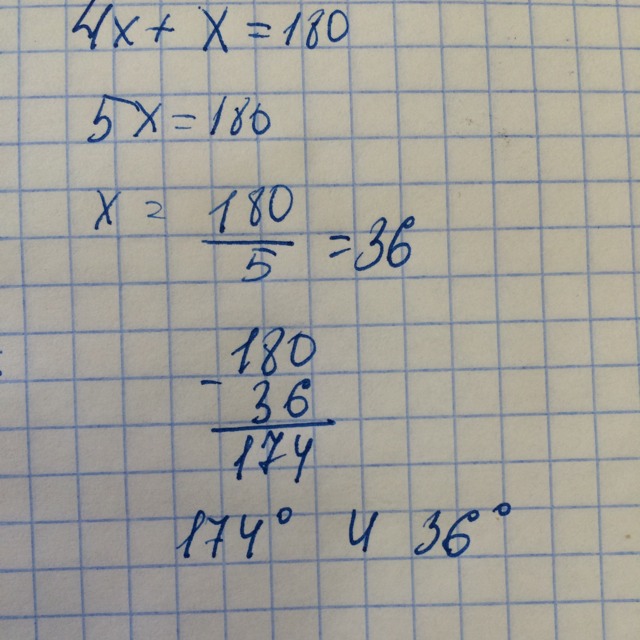 4x + x = 180
5x = 180
x = 180/5 = 36
180
- 36
174
174° и 36°